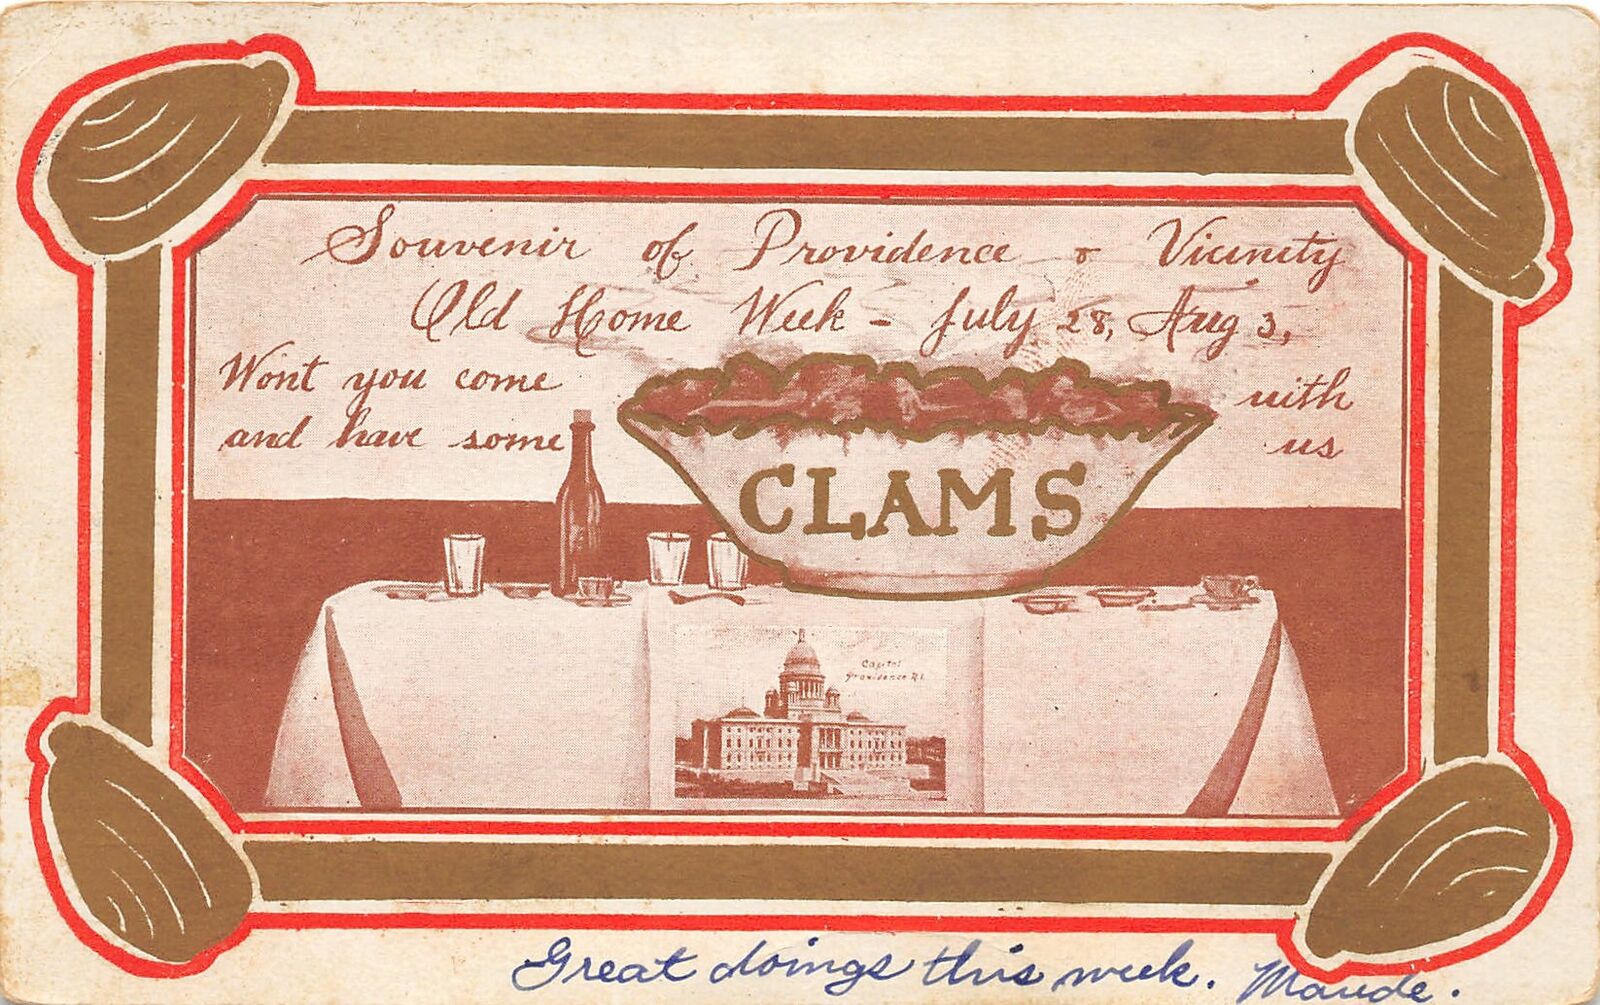 Souvenir of Providence & Vicinity
Old Home Week - July 28, Aug 3,
Wont you come with
and have some us
CLAMS
Capitol
Providence R.I.
Great doings this week. Maude.